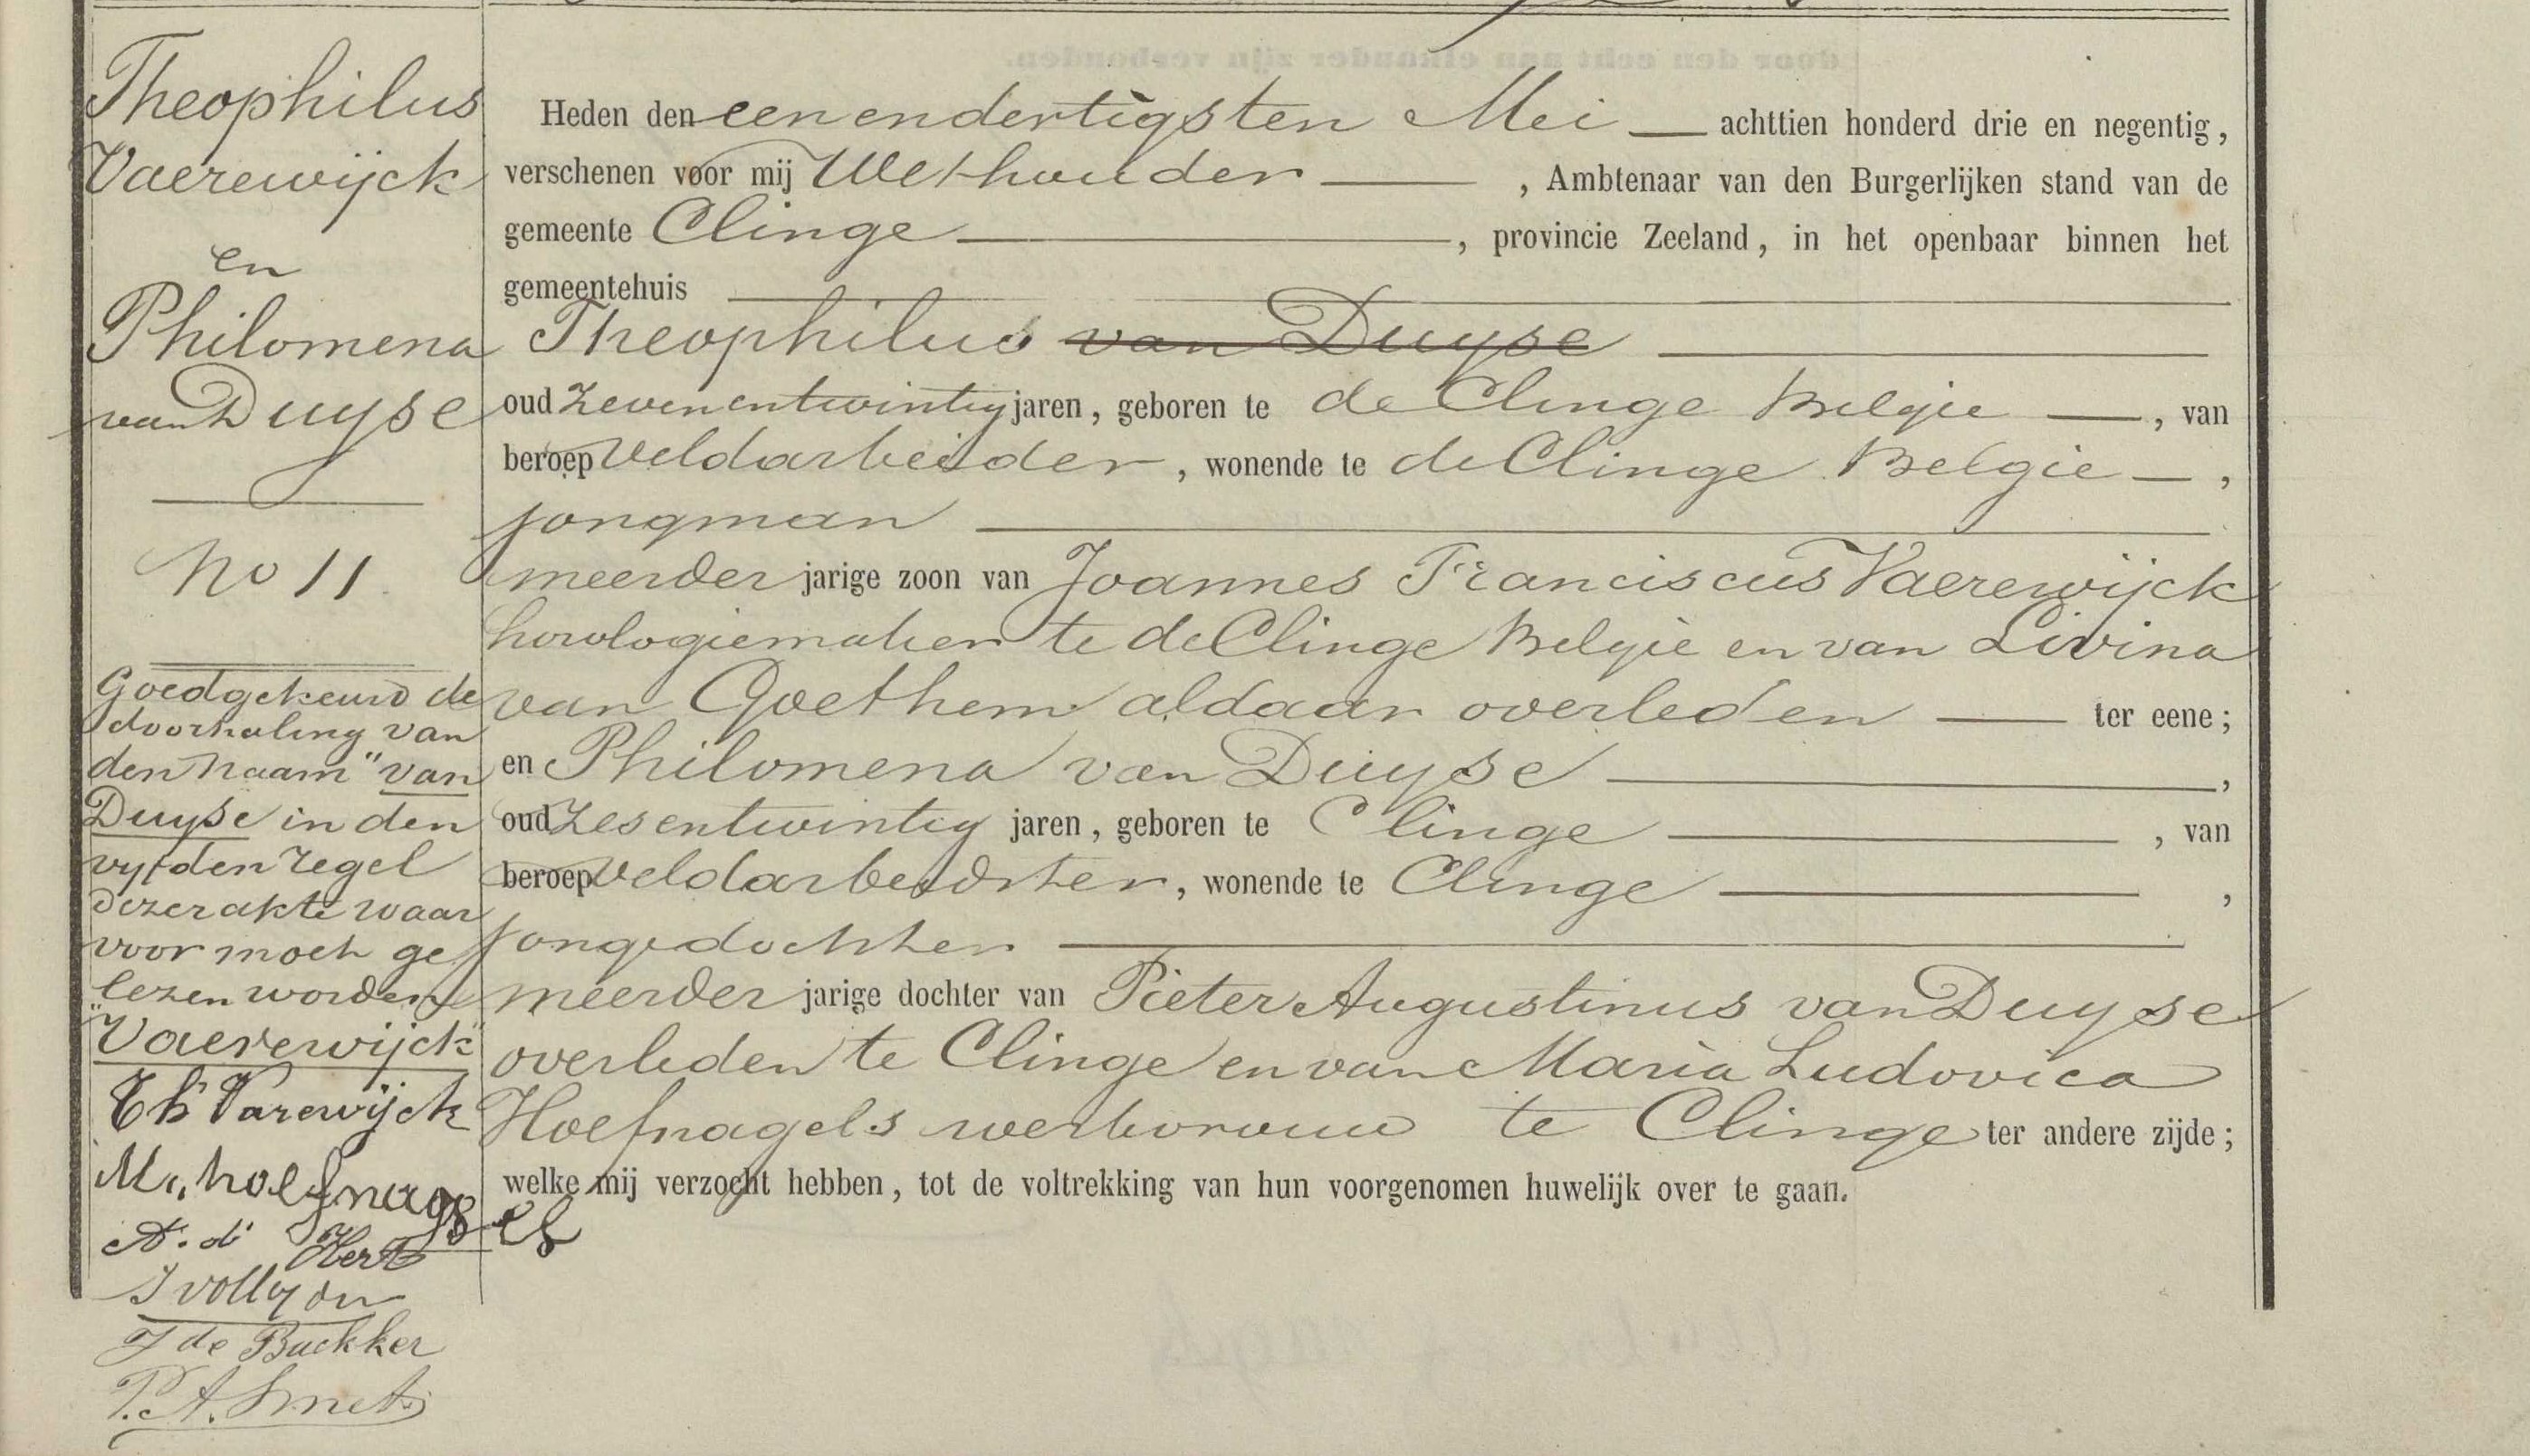 Theophilus
Vaerewijck
en
Philomena
van Duyse
No 11
Goedgekeurd de
doorhaling van
den naam "van
Duyse in den
vijfden regel
dezer akte waar
voor moet ge
lezen worden
"Vaerewijck"
Th Varewijck
M. hoefnagels
A. d' Hert
P. A. Smets
Heden den eenendertigsten Mei achttien honderd drie en negentig,
verschenen voor mij Wethouder, Ambtenaar van den Burgerlijken stand van de
gemeente Clinge, provincie Zeeland, in het openbaar binnen het
gemeentehuis
Theophilus van Duyse
oud zevenentwintig jaren, geboren te de Clinge Belgie, van
beroep Veldarbeider, wonende te de Clinge Belgie,
jongman
meerder jarige zoon van Joannes Franciscus Vaerewijck
horologiemaker te de Clinge Belgie en van Livina
van Goethem aldaar overleden ter eene;
en Philomena van Duyse,
oud zesentwintig jaren, geboren te Clinge, van
beroep Veldarbeidster, wonende te Clinge,
jongedochter
meerder jarige dochter van Pieter Augustinus van Duyse
overleden te Clinge en van Maria Ludovica
Hoefnagels te Clinge ter andere zijde;
welke mij verzocht hebben, tot de voltrekking van hun voorgenomen huwelijk over te gaan.